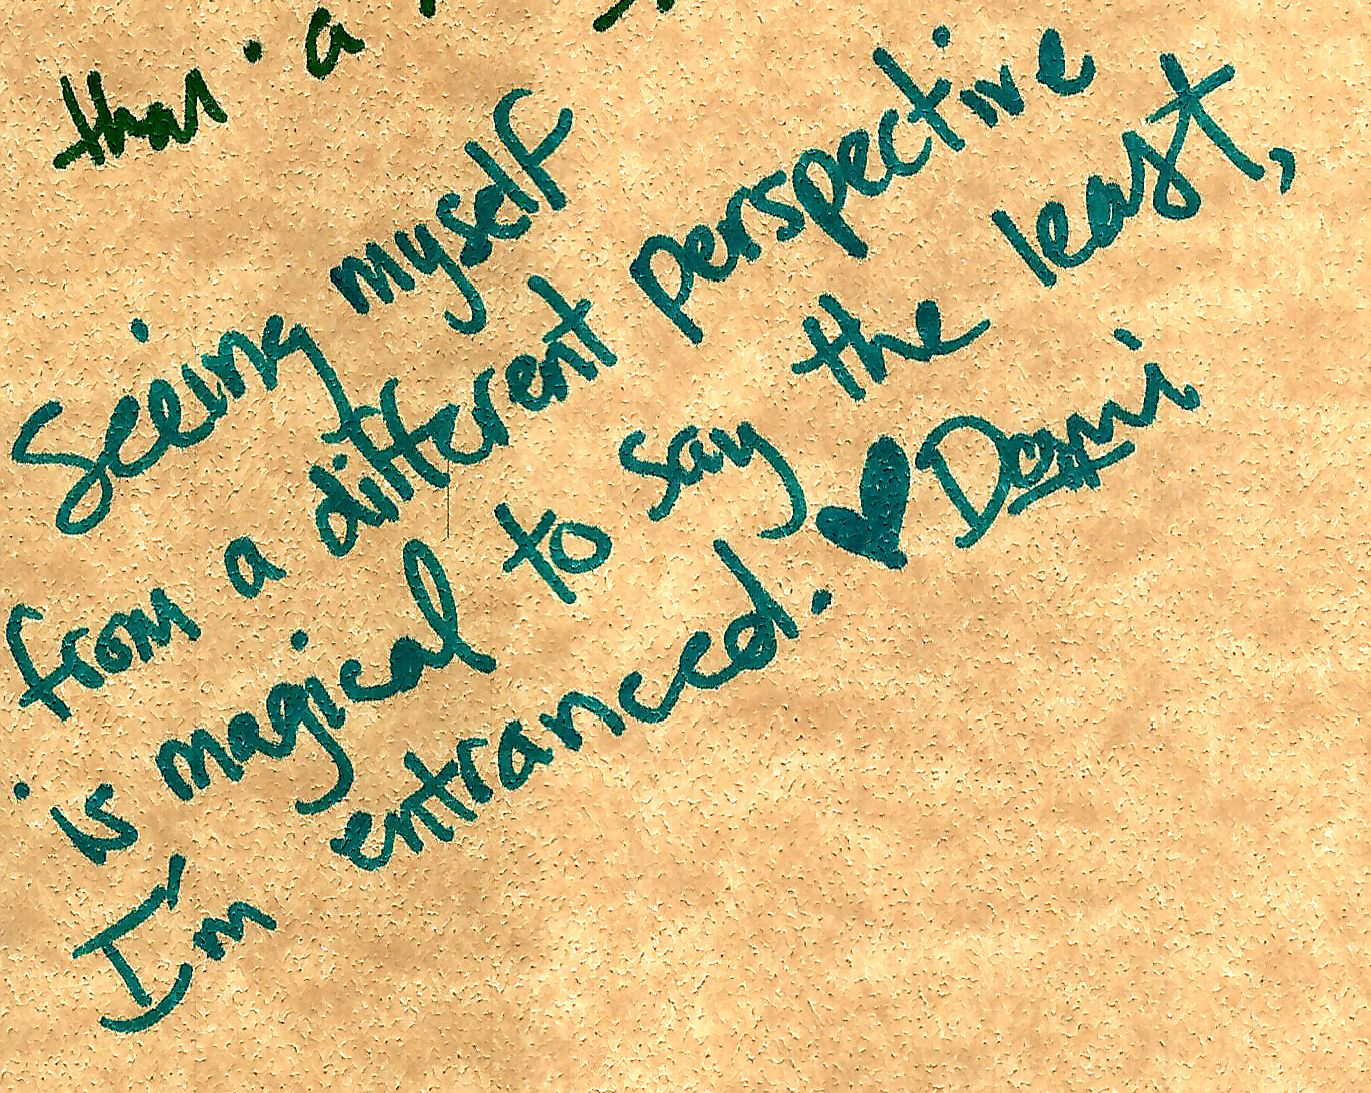 than a
Seeing myself
from a different perspective
is magical to say the least,
I'm entranced. ♥ Demi